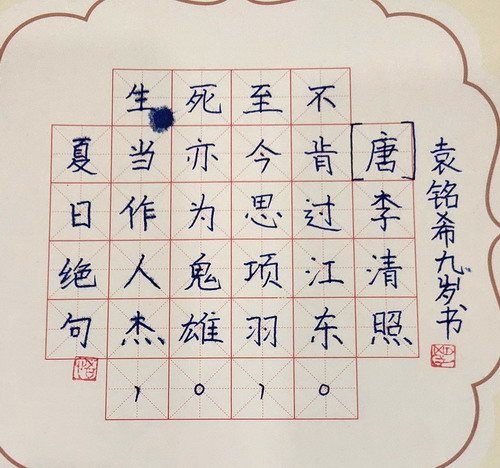 夏日绝句
生当作人杰，
死亦为鬼雄。
至今思项羽，
不肯过江东。
[唐]李清照
袁铭希九岁书